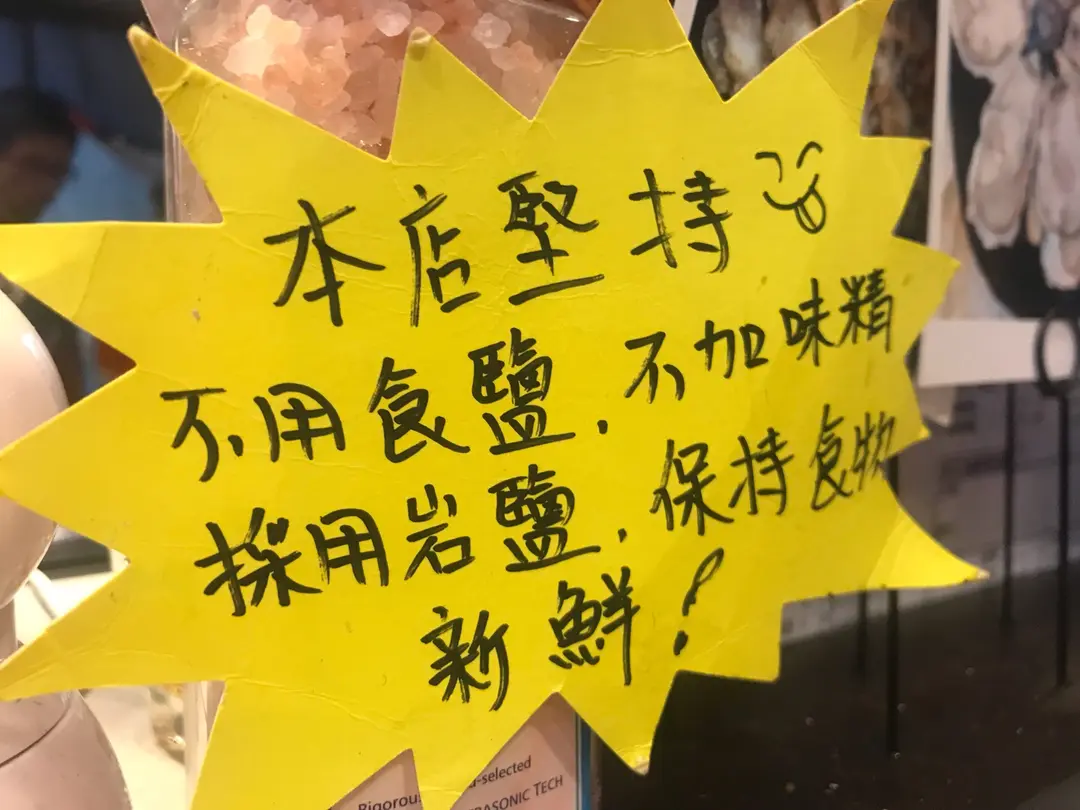 本店堅持
不用食鹽.不加味精
採用岩鹽.保持食物
新鮮!
-selected
ASONIC TECH